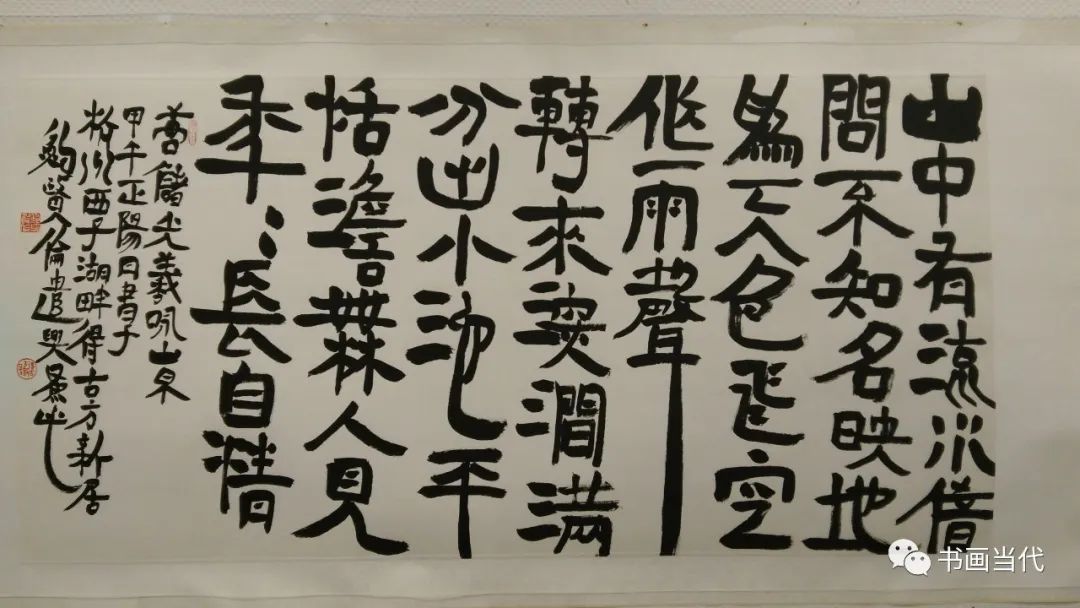 山中有流水借
問不知名映地
為天色飛空
作雨聲
轉來深澗滿
分出小池平
恬澹無人見
年〻長自清
唐儲光羲咏山泉
甲午正陽月書于
杭州西子湖畔得古方新居
遣興墨也
书画当代